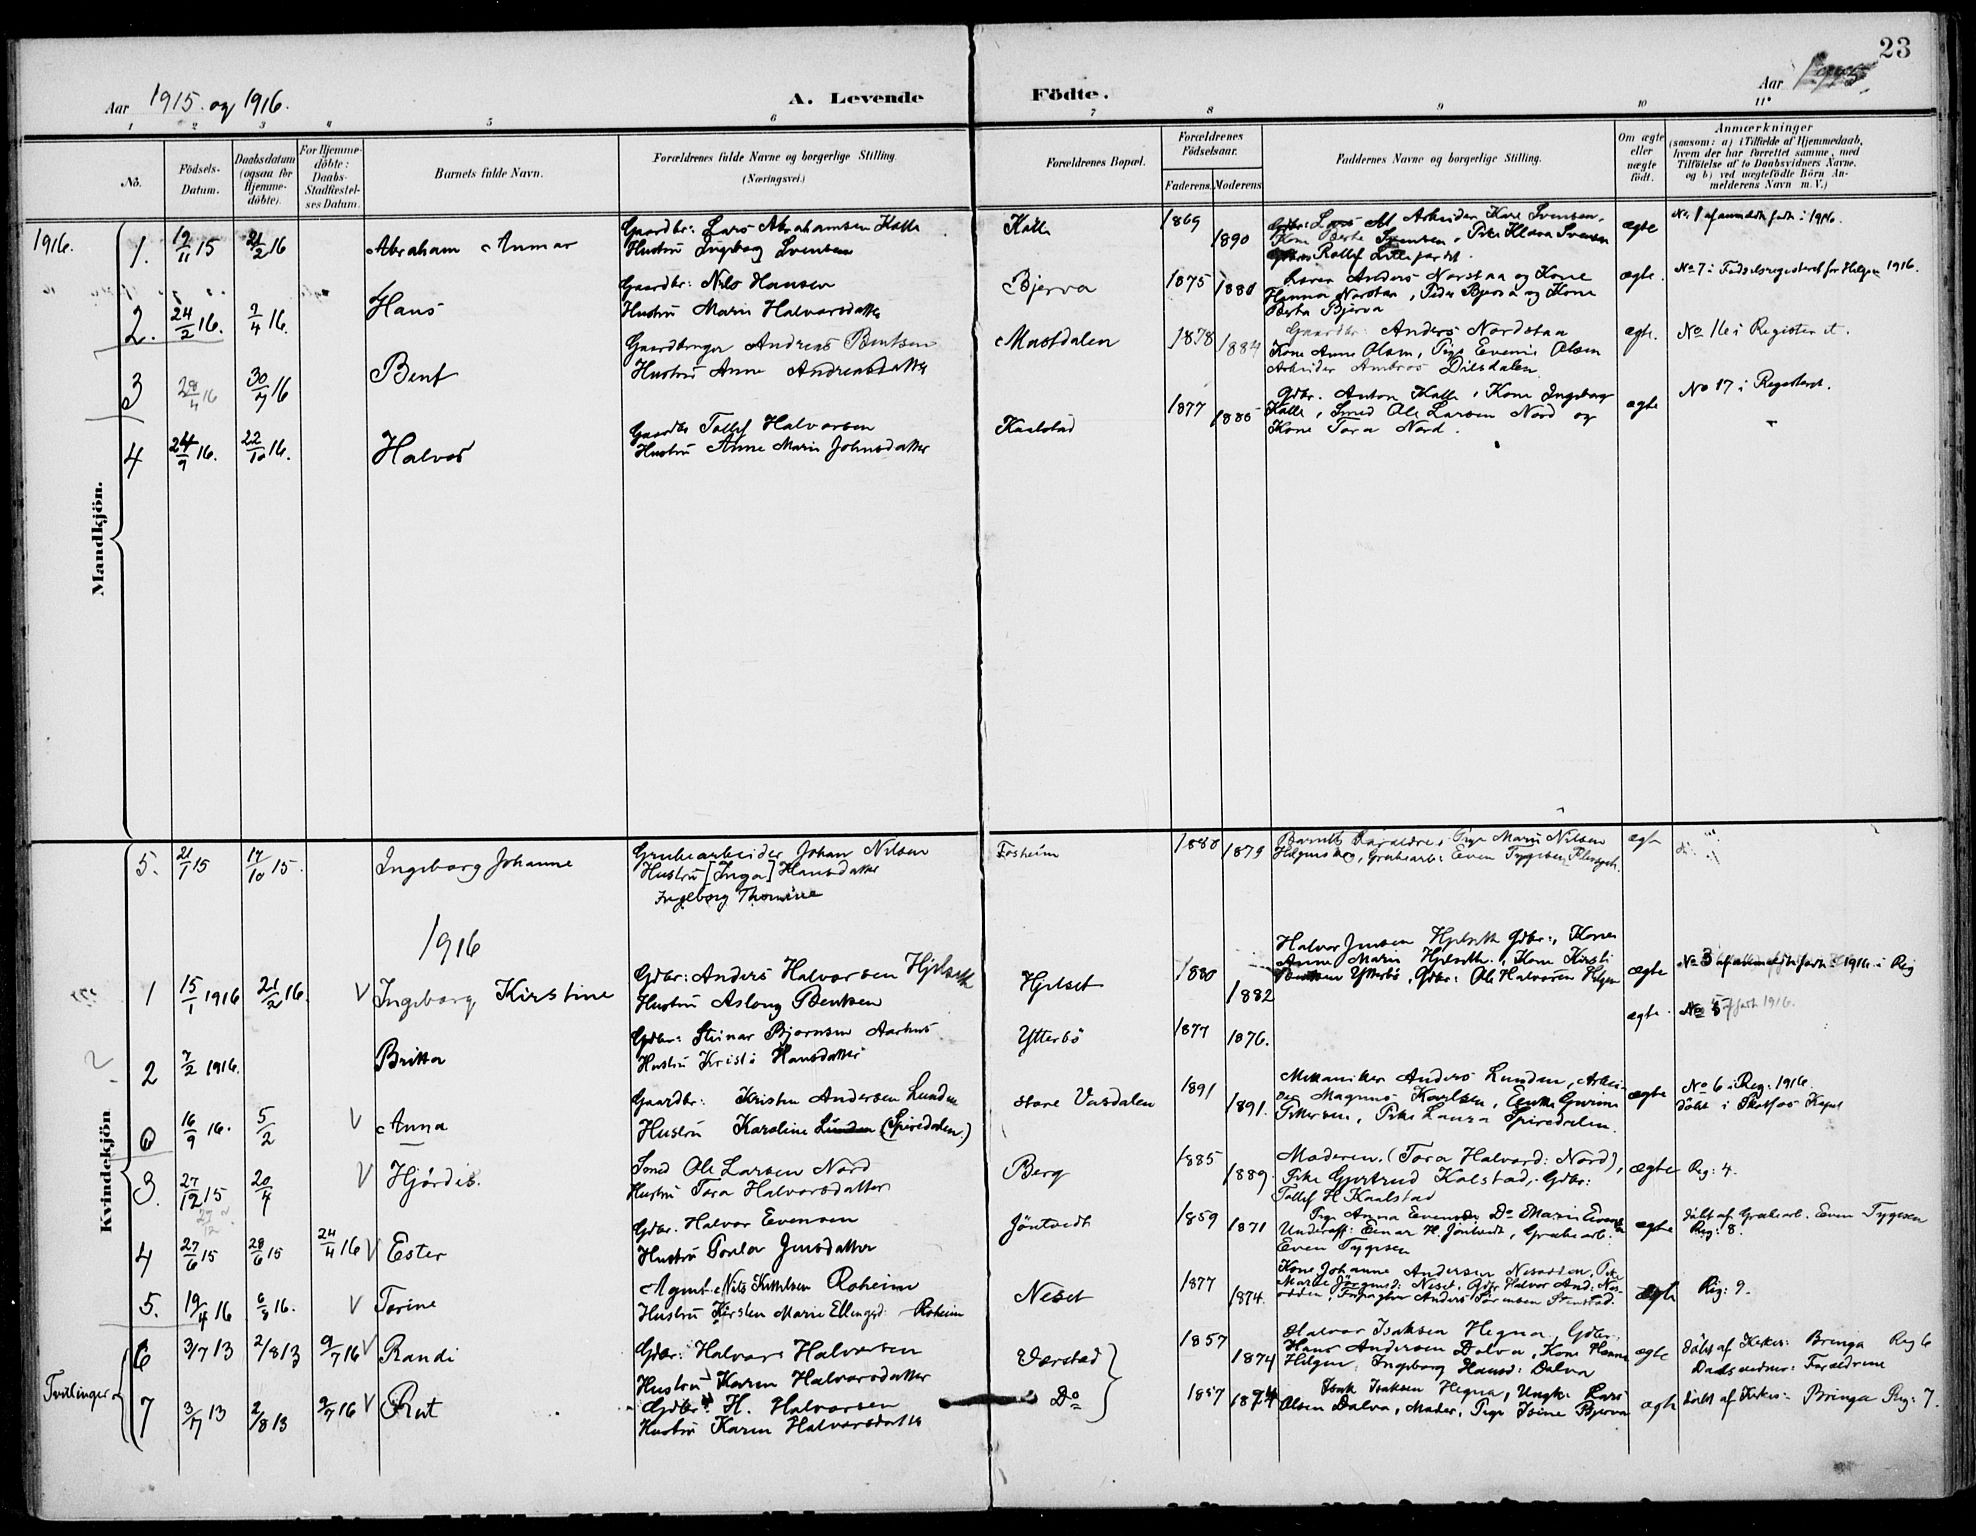 23
Aar 1915 og 1916.
A. Levende Födte.
Aar
1 2 3 4 5 6 7 8 9 10 11
No.
Födsels-Datum.
Daabsdatum (ogsaa för Hjemme-döbte).
For Hjemme-döbte: Daabs-Stadfæstel-ses Datum.
Barnets fulde Navn.
Forældrenes fulde Navne og borgerlige Stilling. (Næringsvei.)
Forældrenes Bopæl.
Forældrenes Födselsaar.
Faderens. Moderens.
Faddernes Navne og borgerlige Stilling.
Om ægte eller uægte födt.
Anmærkninger
(saasom: a) i Tilfælde af Hjemmedaab,
hvem der har forrettet samme, med
Tilföielse af to Daabsvidners Navne,
og b) ved uægtefödte Börn An-
melderens Navn m. V.)
1916.
Mandkjön.
1. 19/11 15 21/2 16 Abraham Anmar
Gaardbr: Lars Abrahamsen Kalle
Hustru Ingeborg Svensen
Kalle 1869 1890
Arbeider Kare Svensen,
Kone Berte Svensen, Pike Klara Svensen
ægte
No 1 af anmeldte født i 1916.
2. 24/2 16. 9/4 16. Hans
Gaardbr: Nils Hansen
Hustru Marie Halvorsdatter
Bjerva 1875 1880
Anders Norstaa og Kone
Hanna Norstaa, Peder Bjerva og Kone
Berta Bjerva
ægte.
No 7 i Fødselsregisteret for Helgen 1916.
3 28/4 16 30/7 16 Bent
Gaardbruger Andreas Bentsen
Hustru Anne Andreasdatter
Mastdalen 1878 1884
Gaardbr: Anders Nordstaa
Kone Anne Olsen, Pige Evenie Olsen
Arbeider Ambros Dilsdalen.
ægte.
No 16 i Register et.
4 24/9 16. 22/10 16. Halvor
Gaardbr Tollef Halvorsen
Hustru Anne Marie Johnsdatter
Kaalstad 1877 1885
Gdbr. Anton Kalle, Kone Ingeborg
Kalle, Smed Ole Larsen Nord og
Kone Tora Nord.
ægte
No 17 i Registeret.
Kvindekjön
5. 21/7 15 17/10 15. Ingeborg Johanne
Grubearbeider Johan Nilsen
Hustru [Inga] Hansdatter
Ingeborg Thomine
Fosheim 1880 1879
Barnets Forældre, Pige Marie Nilsen
Grubearb: Even Tygesen
ægte
1916
1 15/1 1916 21/2 16. V Ingeborg Kirstine
Gdbr: Anders Halvorsen Hjelseth
Hustru Aslaug Bentsen
Hjelset 1880 1882
Halvor Jensen Hjelseth Gdbr:, Kone
Anne Marie Hjelseth:, Kone Kirsti
Bentsen Ytterbö, Gdbr: Ole Halvorsen Helgen
ægte
No 3 af anmeldte født i 1916 i Reg
2 7/2 1916. Britta
Gdbr: Steinar Bjornsen Aarhus
Hustru Kristi Hansdatter
Ytterbö 1877 1876.
ægte.
No 5 født 1916.
6 16/9 16. 5/2 V Anna
Gaardbr: Kristen Andersen Lunden
Hustru Karoline Lunden (Spiredalen.)
store Vasdalen 1891 1891.
Mekaniker Anders Lunden, Arbei-
der Magnus Karlsen, Enke Gurine
Pettersen, Pike Laura Spiredalen.
ægte
No 6 i Reg: 1916.
døbt i Skotfos Kapel
3. 27/12 15 20/4 V Hjördis.
Smed Ole Larsen Nord
Hustru Tora Halvorsdatter
Berg 1885 1889
Moderen (Tora Halvord: Nord),
Pike Gjertrud Kalstad, Gdbr:
Tollef H Kaalstad
ægte
Reg: 4.
4 27/6 15 28/6 15 24/4 16 V Ester
Gdbr. Halvor Evensen
Hustru Torlor Jensdatter
Jöntvedt 1859 1871
Pige Anna Evensen Do Marie Evensen
Underoff: Einar H. Jöntvedt, Grubearb:
Even Tygesen
ægte
döbt af Grubearb. Even Tygesen
Reg: 8.
5. 19/4 16 6/8 16. V Torine
Agent. Nils Kittilsen Roheim
Hustru Kirsten Marie Ellingsd. Roheim
Neset 1877 1874.
Kone Johanne Andersen Nesodden, Pike
Marie Jörgensd: Neset, Gdbr Halvor And: Nes-
odden, Anders Sörensen Stenstad.
ægte
Reg: 9.
Tvillinger
6 3/7 13 2/8 13 9/7 16 V Randi
Gdbr: Halvor Halvorsen
Hustru Karen Halvorsdatter
Værstad 1857 1874
Halvor Isaksen Hegna, Gdbr:
Hans Andersen Dalva, Kone Hanna
Helgen, Ingeborg Hansd: Dalva
ægte
döbt af Kirkes: Bringa Reg 6
Daabsvidner: Forældrene
7 3/7 13 2/8 13 9/7 16 V Rut
Gdbr: H. Halvorsen
Hustru Karen Halvorsdatter
Do 1857 1874
Isak Isaksen Hegna, Ungk: Lars
Olsen Dalva, Moder, Pige Isine Bjerva
ægte
döbt af Kirkes: Bringa Reg: 7.